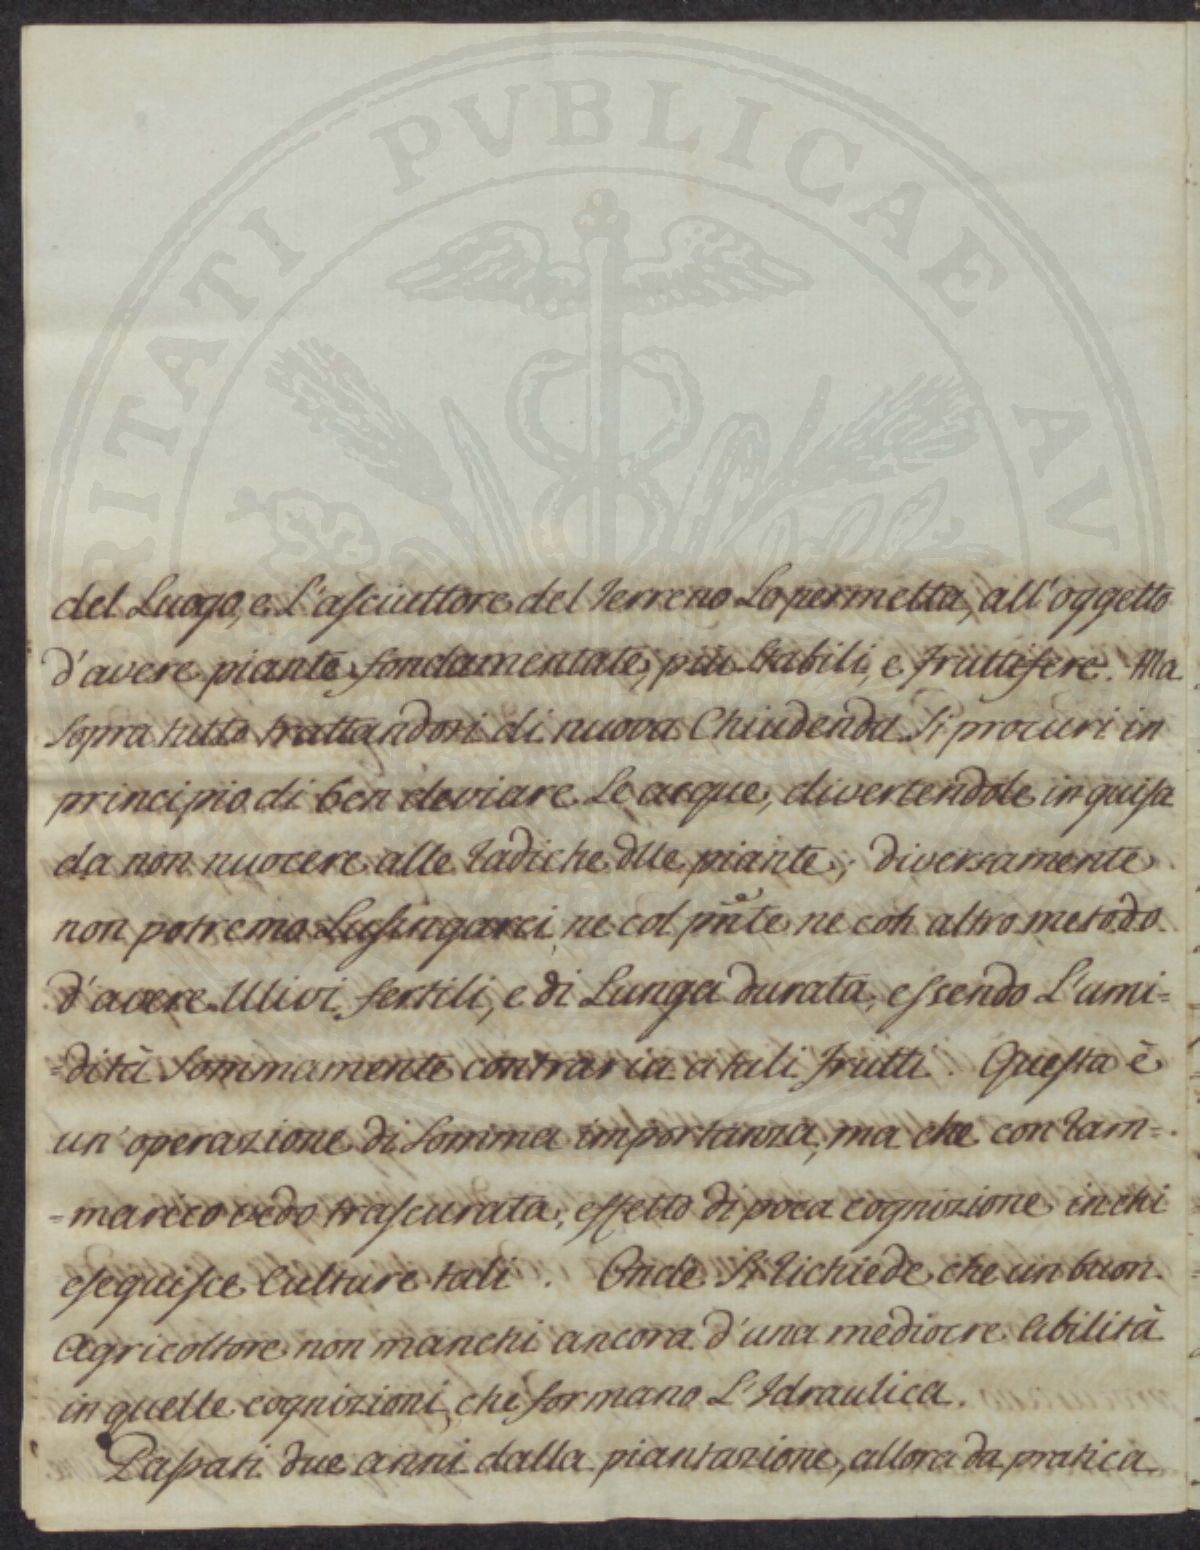 PROSPERITATI PUBLICAE AU
del Luogo, e L'asciuttore del Terreno Lo permetta, all'oggetto
d'avere piante fondamentate, più stabili, e fruttifere. Ma
sopra tutto trattandosi di nuova Chiudenda Si procuri in
principio di ben deviare Le acque, divertendole in guisa
da non nuocere alle radiche dlle piante; diversamente
non potremo Lusingarci ne col pñte ne con altro metodo
d'avere Ulivi fertili, e di Lunga durata, essendo L'umi=
=dità Sommamente contraria a tali frutti. Questa è
un'operazione di Somma importanza, ma che con ram=
=marico vedo trascurata, effetto di poca cognizione in chi
eseguisce Culture tali. Onde Si richiede che un buon
Agricoltore non manchi ancora d'una mediocre abilità
in quelle cognizioni, che formano L'Idraulica.
Passati due anni dalla piantazione, allora da pratica